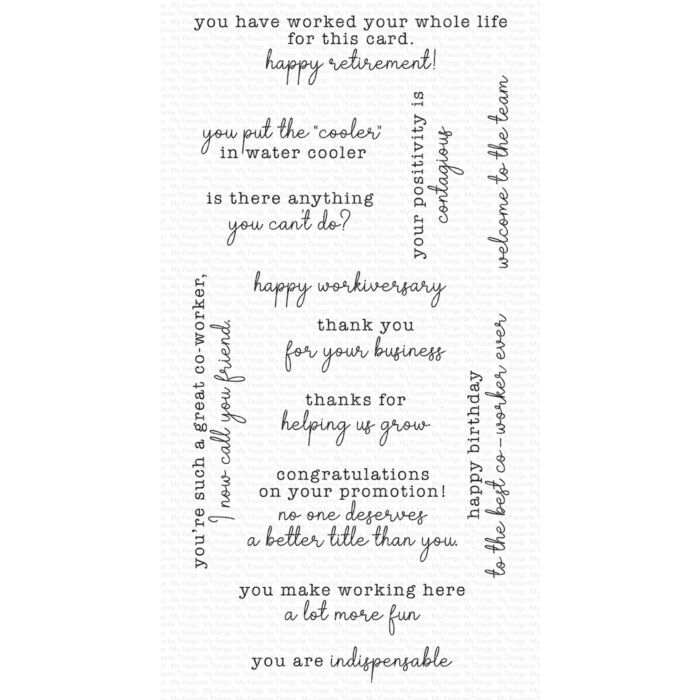 you have worked your whole life
for this card.
happy retirement!
you put the "cooler"
in water cooler
your positivity is
contagious
welcome to the team
is there anything
you can't do?
happy workiversary
you're such a great co-worker,
I now call you friend.
thank you
for your business
thanks for
helping us grow
happy birthday
to the best co-worker ever
congratulations
on your promotion!
no one deserves
a better title than you.
you make working here
a lot more fun
you are indispensable